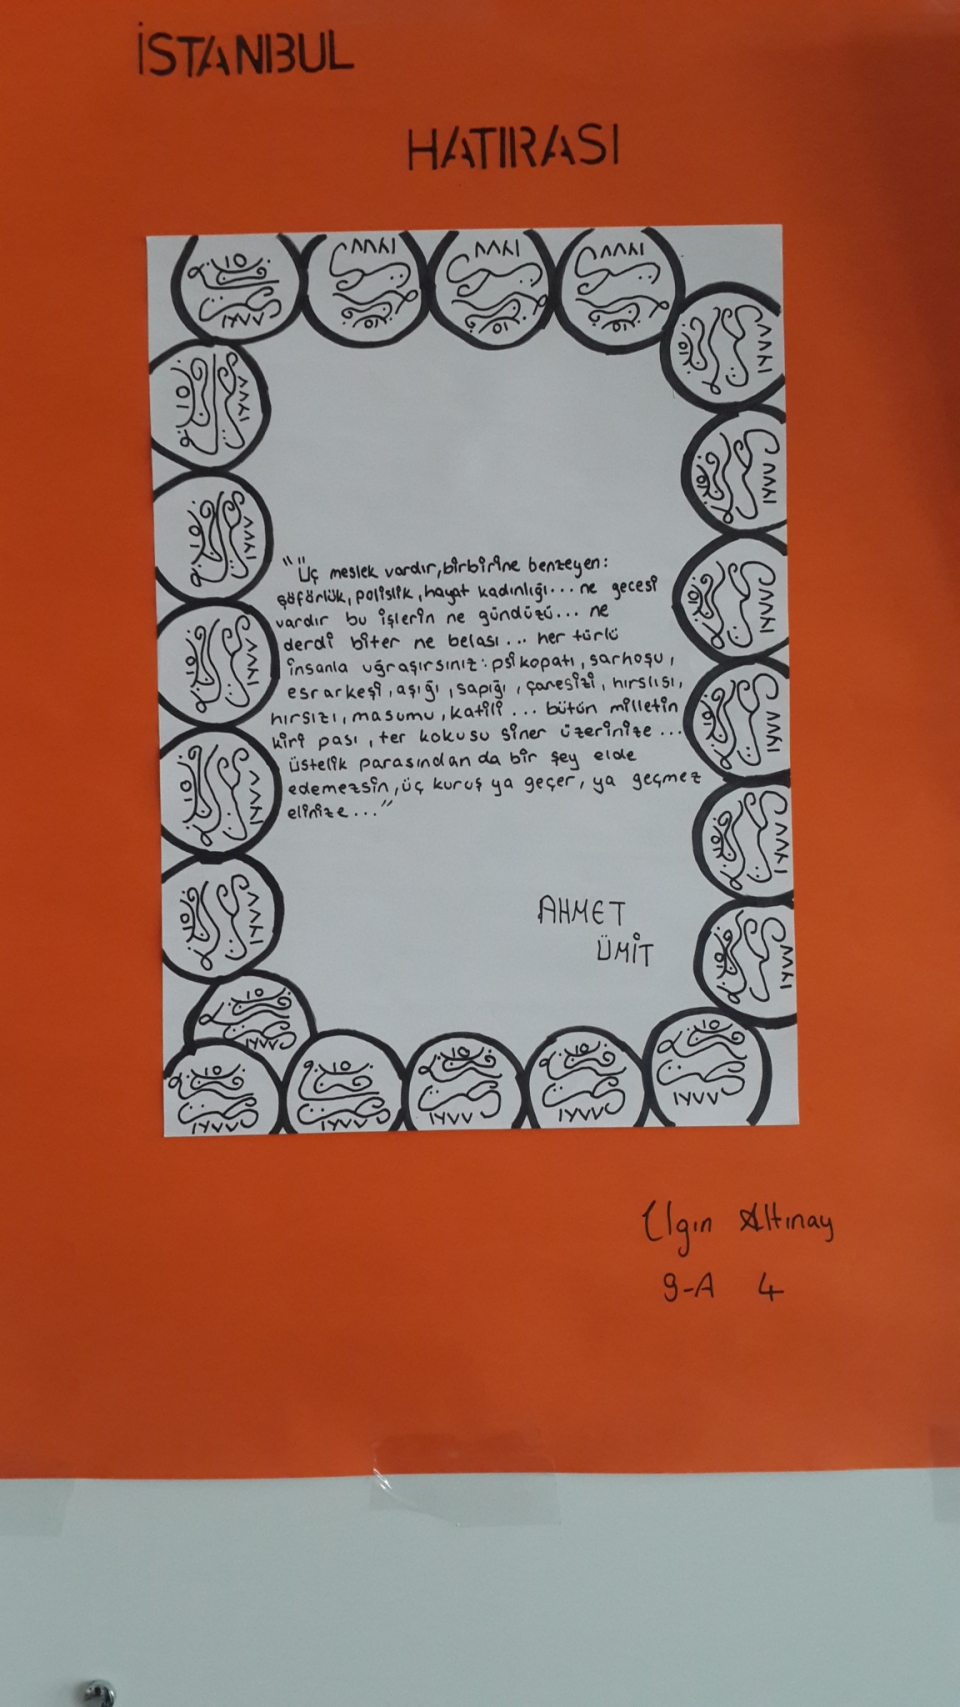 İSTANBUL
HATIRASI
"Üç meslek vardır, birbirine benzeyen:
şöförlük, polislik, hayat kadınlığı... ne gecesi
vardır bu işlerin ne gündüzü... ne
derdi biter ne belası... her türlü
insanla uğraşırsınız: psikopatı, sarhoşu,
esrarkeşi, aşığı, sapığı, çaresizi, hırslısı,
hırsızı, masumu, katili... bütün milletin
kiri pası, ter kokusu siner üzerinize...
üstelik parasından da bir şey elde
edemezsin, üç kuruş ya geçer, ya geçmez
elinize..."
AHMET
ÜMİT
Elgın Altınay
9-A 4